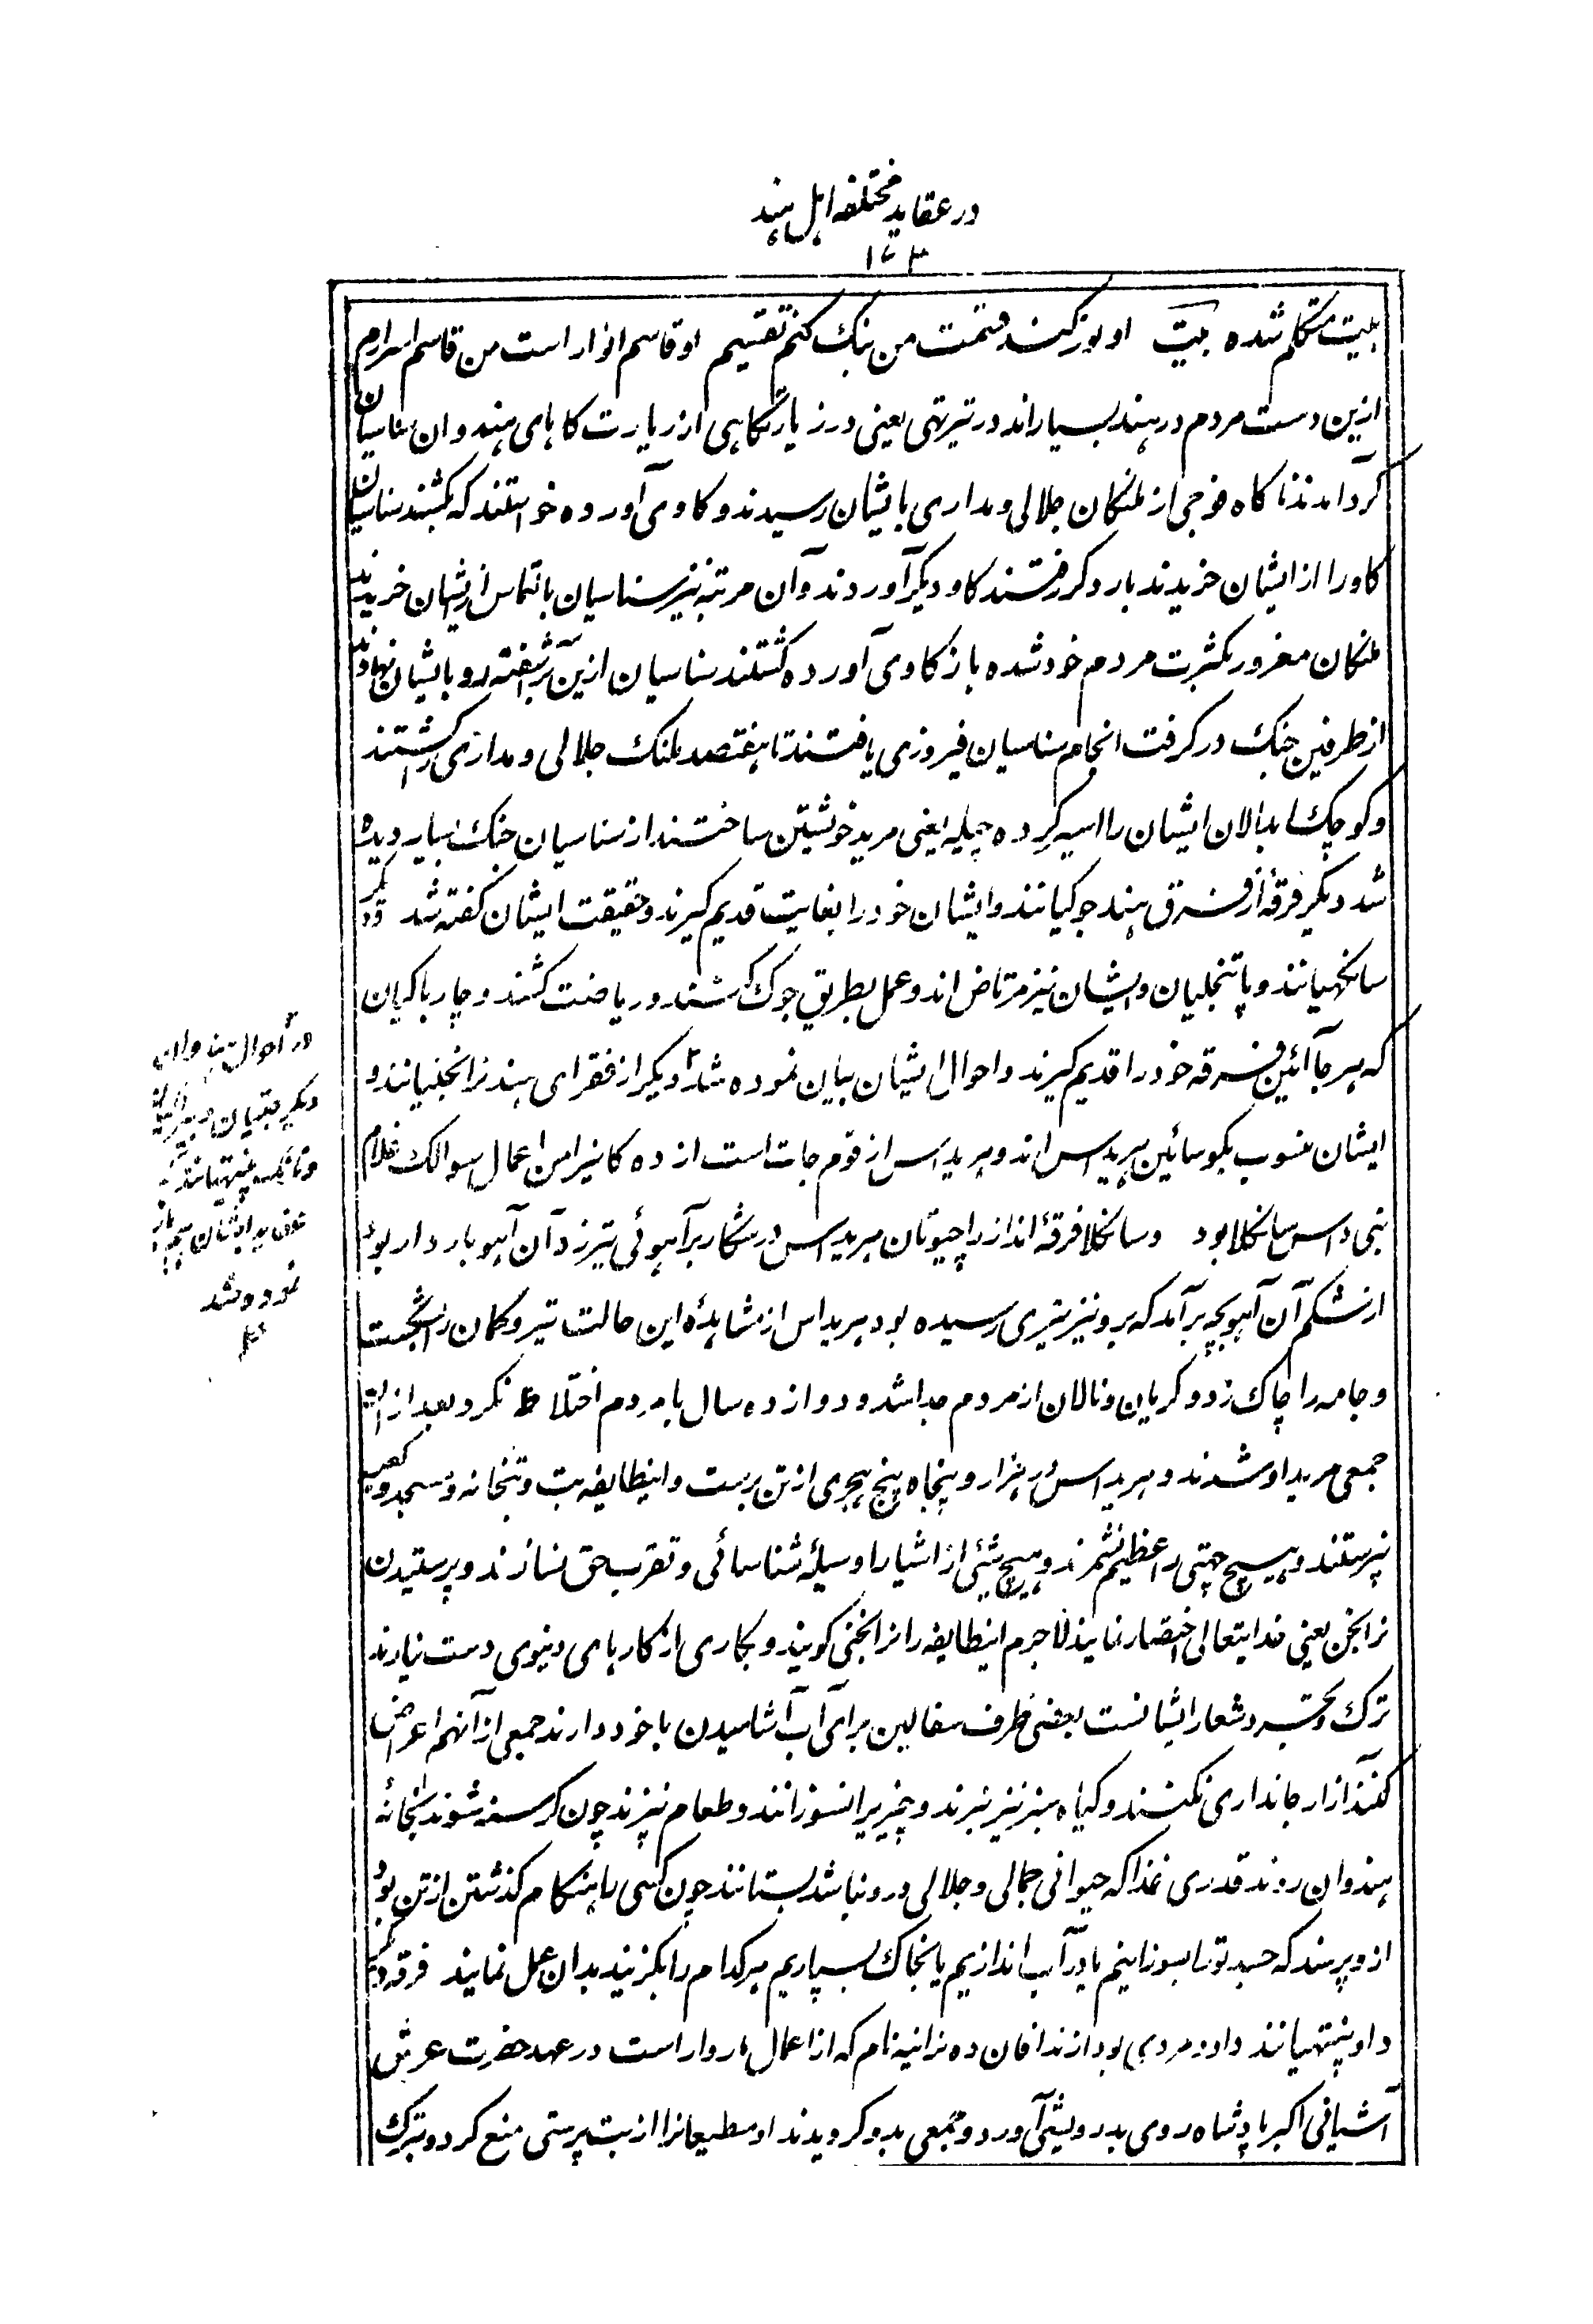 در عقاید مختلفه اهل هند
۱۷۳
بیت متکلم شده بیت او نور کند قسمت من بنک کنم تقسیم او قاسم انوار است من قاسم اسرارم
ازین دست مردم در هند بسیار اند در تیرتهی یعنی در زیارتکاهی از زیارت کاهای هندوان سناسیان
کرد آمدند ناکاه فوجی از ملنکان جلالی و مداری بایشان رسیدند و کاوی آورده خواستند که بکشند سناسیان
کاو را از ایشان خریدند بار دکر رفتند کاو دیکر آوردند و آن مرتبه نیز سناسیان بالتماس از ایشان خریدند
ملنکان مغرور بکثرت مردم خود شده باز کاوی آورده کشتند سناسیان ازین برآشفته رو بایشان نهادند
از طرفین جنک در کرفت انجام سناسیان فیروزی یافتند تا هفتصد ملنک جلالی و مداری را کشتند
و کوچک ابدالان ایشان را اسیر کرده چیله یعنی مرید خویشتن ساختند از سناسیان جنک بسیار دیده
شد دیکر فرقهٔ از فرق هند جوکیانند و ایشان خود را بغایت قدیم کیرند و حقیقت ایشان کفته شد دیکر
سانکهیانند و پاتنجلیان و ایشان نیز مرتاض اند و عمل بطریق جوک کنند و ریاضت کشند و چارباکیان
که هر جا آئین فرقه خود را قدیم کیرند و احوال ایشان بیان نموده شد دیکر از فقرای هند نرانجنیانند و
ایشان منسوب بکوسائین هریداس اند و هریداس از قوم جات است از ده کانیرا من اعمال سوالک غلام
نبی داس سانکلا بود و سانکلا فرقهٔ اند از راجپوتان هریداس در شکار بر آهوئی تیر زد آن آهو باردار بود
از شکم آن آهو بچه برآمد که برو نیز تیری رسیده بود هریداس از مشاهدهٔ این حالت تیر و کمان را شکست
و جامه را چاک زد و کریان و نالان از مردم جدا شد و دوازده سال با مردم اختلاط نکرد بعد از ان
جمعی مرید او شدند و هریداس در هزار و پنجاه پنج هجری از تن برست و اینطایفه بت و بتخانه و مسجد و کعبه
نپرستند و هیچ جهتی را عظیم نشمرند و هیچ شیئی از اشیا را وسیلهٔ شناسائی و تقرب حق نسازند و پرستیدن
نرانجن یعنی خدایتعالی اختصار نمایند لاجرم اینطایفه را نرانجنی کویند و بکاری از کارهای دنیوی دست نیارند
ترک و تجرد شعار ایشانست بعضی ظرف سفالین برای آب آشامیدن با خود دارند جمعی از آنهم اعراض
کنند آزار جانداری نکنند و کیاه سبز نیز نبرند و چیزی را نسوزانند و طعام نپزند چون کرسنه شوند بخانهٔ
هندوان روند قدری غذا که حیوانی جمالی و جلالی درو نباشد بستانند چون کسی را هنکام کذشتن از تن بود
ازو پرسند که جسد تو را بسوزانیم یا در آب اندازیم یا بخاک بسپاریم هرکدام را بکزیند بدان عمل نمایند فرقه دیکر
داو پنتهیانند دادو مردی بود از ندافان ده نرانیه نام که از اعمال ماروار است در عهد حضرت عرش
آشیانی اکبر پادشاه روی بدرویشی آورد و جمعی بدو کرویدند او مطیعانرا از بت پرستی منع کرد و بترک
در احوال